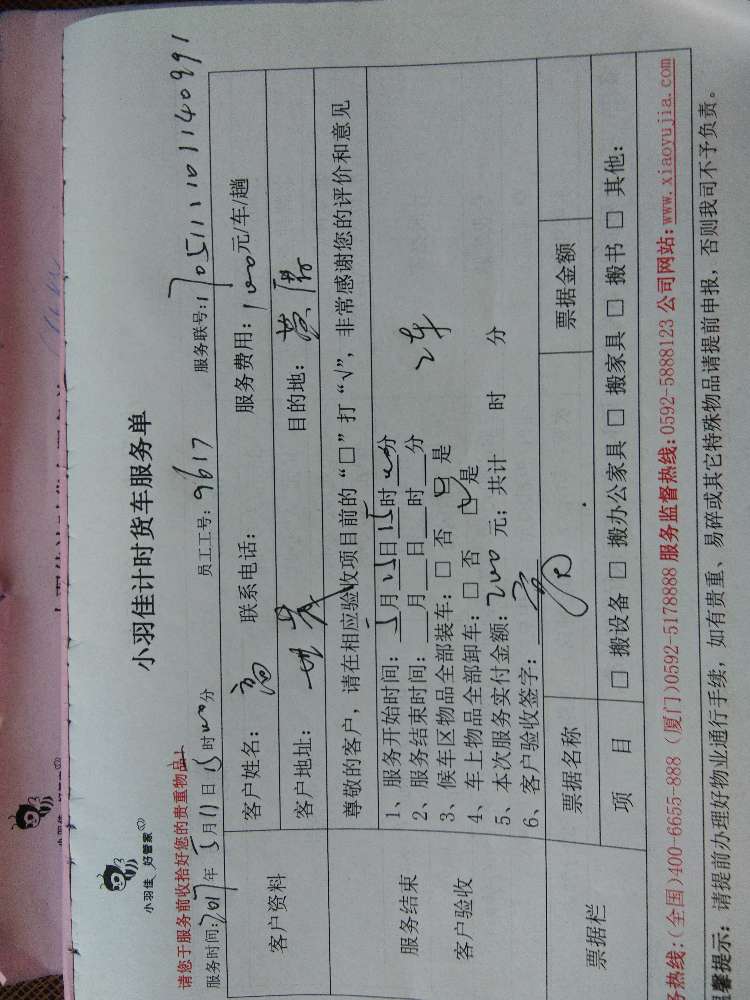 小羽佳 好管家
小羽佳计时货车服务单
请您于服务前收拾好您的贵重物品!
服务时间: 2017年 5月 11日 15时 00分 员工工号: 9617 服务联号: 17051111101140991
客户资料
客户姓名: 联系电话: 服务费用: 1000元/车/趟
客户地址: 目的地: 黄厝
服务结束
客户验收
尊敬的客户, 请在相应验收项目前的“□”打“√”, 非常感谢您的评价和意见
1、服务开始时间: 5月 15日 15时 00分
2、服务结束时间: 月 日 时 分
3、候车区物品全部装车: □ 否 □ 是 2车
4、车上物品全部卸车: □ 否 □ 是
5、本次服务实付金额: 2000 元; 共计 时 分
6、客户验收签字:
票据栏
票据名称 票据金额
项 目 □ 搬设备 □ 搬办公家具 □ 搬家具 □ 搬书 □ 其他:
热线: (全国)400-6655-888 (厦门)0592-5178888 服务监督热线: 0592-5888123 公司网站: www.xiaoyujia.com
馨提示: 请提前办理好物业通行手续, 如有贵重、易碎或其它特殊物品请提前申报, 否则我司不予负责。